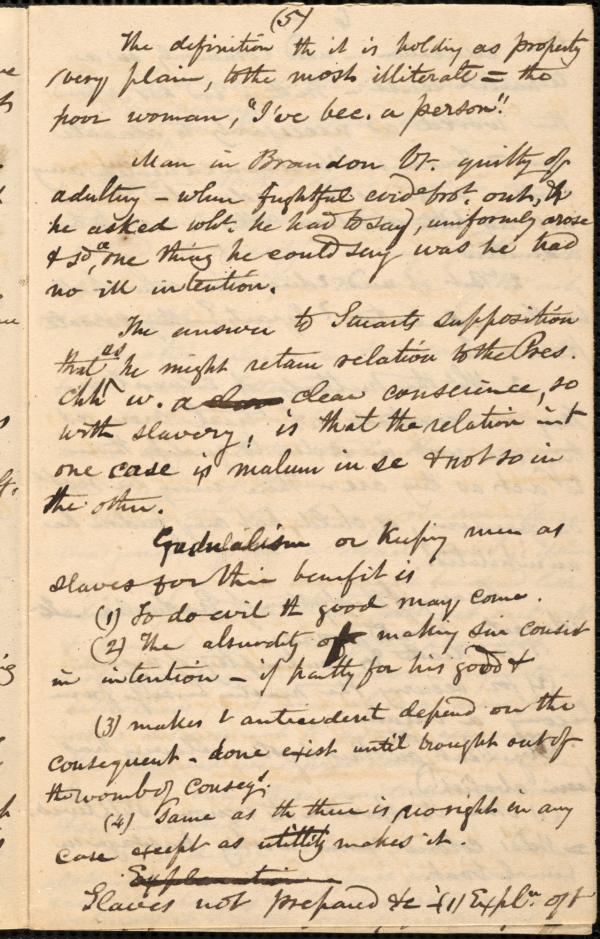 (5)
The definition th it is holding as property
very plain, to the most illiterate = the
poor woman, "I've bec. a person"!
Man in Brandon Vt. guilty of
adultery - when frightful evid brot. out, &
he asked wht. he had to say, uniformly arose
& sd, one thing he could say was he had
no ill intention.
The answer to Stuarts supposition
that as he might retain relation to the Pres.
Chh w. a clear conscience, so
with slavery, is that the relation in t
one case is malum in se & not so in
the other.
Gradualism or Keeping men as
slaves for their benefit is
(1) To do evil th good may come.
(2) The absurdity of making sin consist
in intention - if partly for his good &
(3) makes t antecedent depend on the
consequent - done exist until brought out of
the womb of conseqt.
(4) Same as th there is no right in any
case except as utility makes it.
Explanation
Slaves not prepared &c - (1) Expln of t